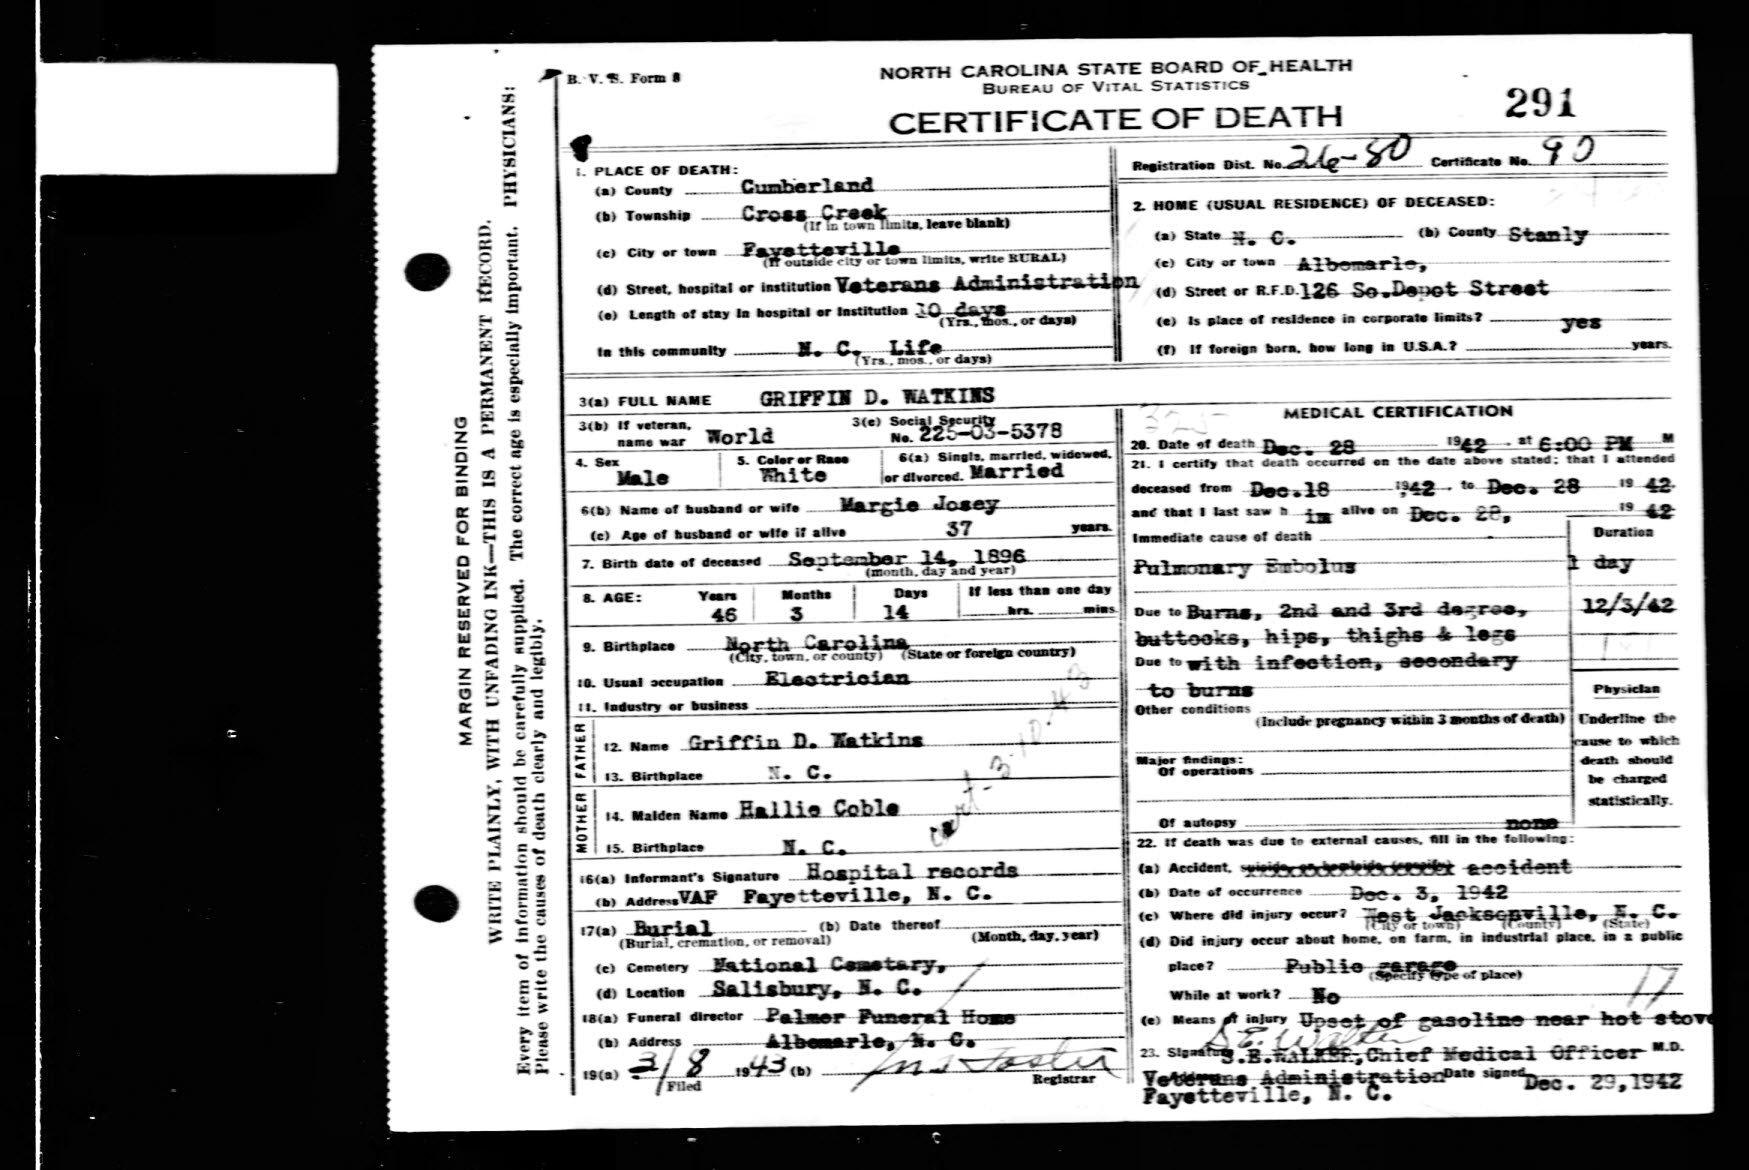 B. V. S. Form 8
NORTH CAROLINA STATE BOARD OF HEALTH
BUREAU OF VITAL STATISTICS
CERTIFICATE OF DEATH
291
Registration Dist. No. 26-80 Certificate No. 90
MARGIN RESERVED FOR BINDING
WRITE PLAINLY, WITH UNFADING INK—THIS IS A PERMANENT RECORD.
Every item of information should be carefully supplied. The correct age is especially important. PHYSICIANS:
Please write the causes of death clearly and legibly.
1. PLACE OF DEATH:
(a) County Cumberland
(b) Township Cross Creek
(If in town limits, leave blank)
(c) City or town Fayetteville
(If outside city or town limits, write RURAL)
(d) Street, hospital or institution Veterans Administration
(e) Length of stay in hospital or institution 10 days
(Yrs., mos., or days)
In this community N. C. Life
(Yrs., mos., or days)
2. HOME (USUAL RESIDENCE) OF DECEASED:
(a) State N. C. (b) County Stanly
(c) City or town Albemarle,
(d) Street or R.F.D. 126 So. Depot Street
(e) Is place of residence in corporate limits? yes
(f) If foreign born, how long in U.S.A.? years.
3(a) FULL NAME GRIFFIN D. WATKINS
3(b) If veteran, name war World
3(c) Social Security No. 225-03-5378
4. Sex Male
5. Color or Race White
6(a) Single, married, widowed, or divorced. Married
6(b) Name of husband or wife Margie Josey
(c) Age of husband or wife if alive 37 years.
7. Birth date of deceased September 14, 1896
(month, day and year)
8. AGE: Years Months Days If less than one day
46 3 14 hrs. mins.
9. Birthplace North Carolina
(City, town, or county) (State or foreign country)
10. Usual occupation Electrician
11. Industry or business
FATHER
12. Name Griffin D. Watkins
13. Birthplace N. C.
MOTHER
14. Maiden Name Hallie Coble
15. Birthplace N. C.
3-10-43
16(a) Informant's Signature Hospital records
(b) Address VAF Fayetteville, N. C.
17(a) Burial (b) Date thereof
(Burial, cremation, or removal) (Month, day, year)
(c) Cemetery National Cemetary,
(d) Location Salisbury, N. C.
18(a) Funeral director Palmer Funeral Home
(b) Address Albemarle, N. C.
19(a) 3/8 1943 (b)
Filed Registrar
325
MEDICAL CERTIFICATION
20. Date of death Dec. 28 1942 at 6:00 PM M
21. I certify that death occurred on the date above stated; that I attended
deceased from Dec.18 1942. to Dec. 28 19 42.
and that I last saw h im alive on Dec. 28, 19 42
Immediate cause of death Duration
Pulmonary Embolus 1 day
Due to Burns, 2nd and 3rd degree, 12/3/42
buttocks, hips, thighs & legs
Due to with infection, secondary
to burns
Other conditions
(Include pregnancy within 3 months of death)
Major findings:
Of operations
Of autopsy none
Physician
Underline the
cause to which
death should
be charged
statistically.
22. If death was due to external causes, fill in the following:
(a) Accident, suicide or homicide (specify) accident
(b) Date of occurrence Dec. 3, 1942
(c) Where did injury occur? West Jacksonville, N. C.
(City or town) (County) (State)
(d) Did injury occur about home, on farm, in industrial place, in a public
place? Public garage
(Specify type of place)
While at work? No
17
(e) Means of injury Upset of gasoline near hot stove
S E Walker
23. Signature S.E.WALKER, Chief Medical Officer M.D.
Veterans Administration Date signed Dec. 29, 1942
Fayetteville, N. C.